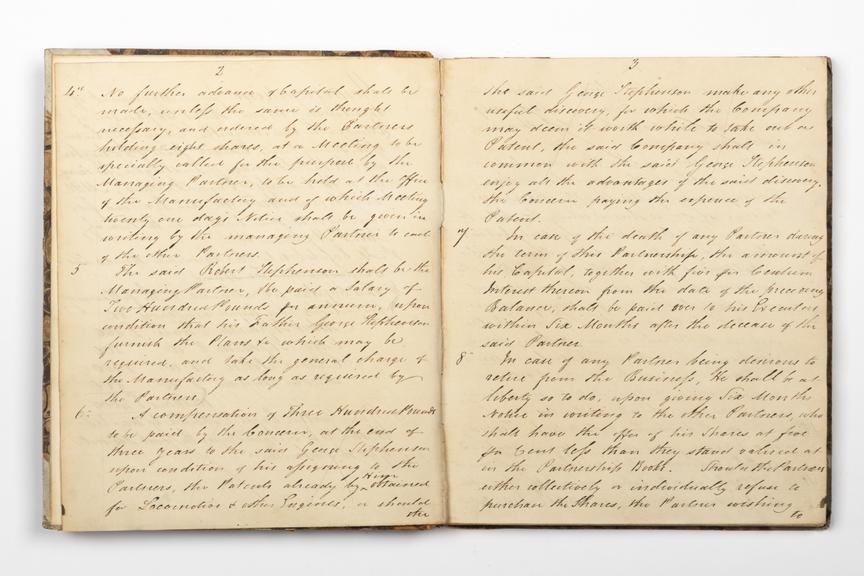 2
4th No further advance of Capital shall be
made, unless the same is thought
necessary, and ordered by the Partners
holding eight shares, at a Meeting to be
specially called for the purpose by the
Managing Partner, to be held at the Office
of the Manufactory and of which Meeting
twenty one days Notice shall be given in
writing by the managing Partner to each
of the other Partners.
5 The said Robert Stephenson shall be the
Managing Partner, & be paid a Salary of
Two Hundred Pounds per annum, upon
condition that his Father George Stephenson
furnish the Plans &c which may be
required, and take the general charge of
the Manufactory as long as required by
the Partners
6 A compensation of Three Hundred Pounds
to be paid by the Concern, at the end of
three years to the said George Stephenson
upon condition of his assigning to the
Partners, the Patents already by Him obtained
for Locomotive & other Engines, or should
the
3
the said George Stephenson make any other
useful discovery, for which the Company
may deem it worth while to take out a
Patent, the said Company shall in
common with the said George Stephenson
enjoy all the advantages of the said discovery,
the Concern paying the expence of the
Patent.
7 In case of the death of any Partner during
the term of this Partnership, the amount of
his Capital, together with five per Centum
Interest thereon from the date of the preceding
Balance, shall be paid over to his Executors
within Six Months after the decease of the
said Partner
8 In case of any Partner being desirous to
retire from the Business, He shall be at
liberty so to do, upon giving Six Months
Notice in writing to the other Partners, who
shall have the offer of his Shares at five
per Cent less than they stand valued at
in the Partnership Books. Should the Partners
either collectively or individually refuse to
purchase the Shares, the Partner wishing
to